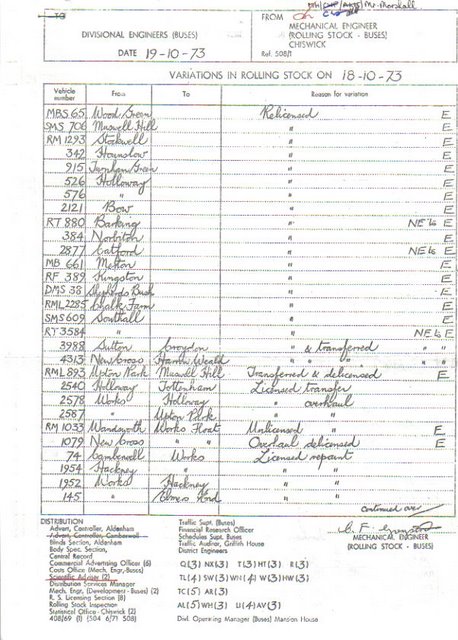 TO
DIVISIONAL ENGINEERS (BUSES)
DATE 19-10-73
Mr. Marshall
FROM
MECHANICAL ENGINEER
(ROLLING STOCK - BUSES)
CHISWICK
Ref. 508/1
VARIATIONS IN ROLLING STOCK ON 18-10-73
Vehicle number From To Reason for variation
MBS 65 Wood Green Relicensed E
SMS 706 Muswell Hill " E
RM 1293 Stockwell " E
342 Hounslow " E
915 Turnham Green " E
526 Holloway " E
576 " " E
2121 Bow " E
RT 880 Barking " NE to E
384 Norbiton " E
2877 Catford " NE to E
MB 661 Merton " E
RF 389 Kingston " E
DMS 38 Shepherds Bush " E
RML 2285 Chalk Farm " E
SMS 609 Southall " E
RT 3584 " " NE to E
3988 Sutton Croydon " & transferred " "
4313 New Cross Harrow Weald " " " " "
RML 893 Upton Park Muswell Hill Transferred & delicensed E
2540 Holloway Tottenham Licensed transfer
2578 Works Holloway " overhaul
2587 " Upton Park " "
RM 1033 Wandsworth Works Float Unlicensed " E
1079 New Cross " " Overhaul delicensed E
74 Camberwell Works Licensed repaint
1954 Hackney " " "
1952 Works Hackney " "
145 " Elmers End " "
continued over
DISTRIBUTION
Advert. Controller, Aldenham
Advert. Controller, Camberwell
Blinds Section, Aldenham
Body Spec. Section,
Central Record
Commercial Advertising (6)
Costs Office (Mech. Engr. Buses)
Scientific Adviser (2)
Distribution Services Manager
Mech. Engr. (Development - Buses) (2)
R. S. Licensing Section (8)
Rolling Stock Inspection
Statistical Office - Chiswick (2)
408/69 (1) (504 6/71 508)
Traffic Supt. (Buses)
Financial Research Officer
Schedules Supt. Buses
Traffic Auditor, Griffith House
District Engineers
Q(3) NX(3) T(3) HT(3) R(3)
TL(4) SW(3) WH(4) W(3) HW(3)
TC(5) AR(3)
AL(5) WH(3) U(4) AV(3)
Divl. Operating Manager (Buses) Mansion House
MECHANICAL ENGINEER
(ROLLING STOCK - BUSES)